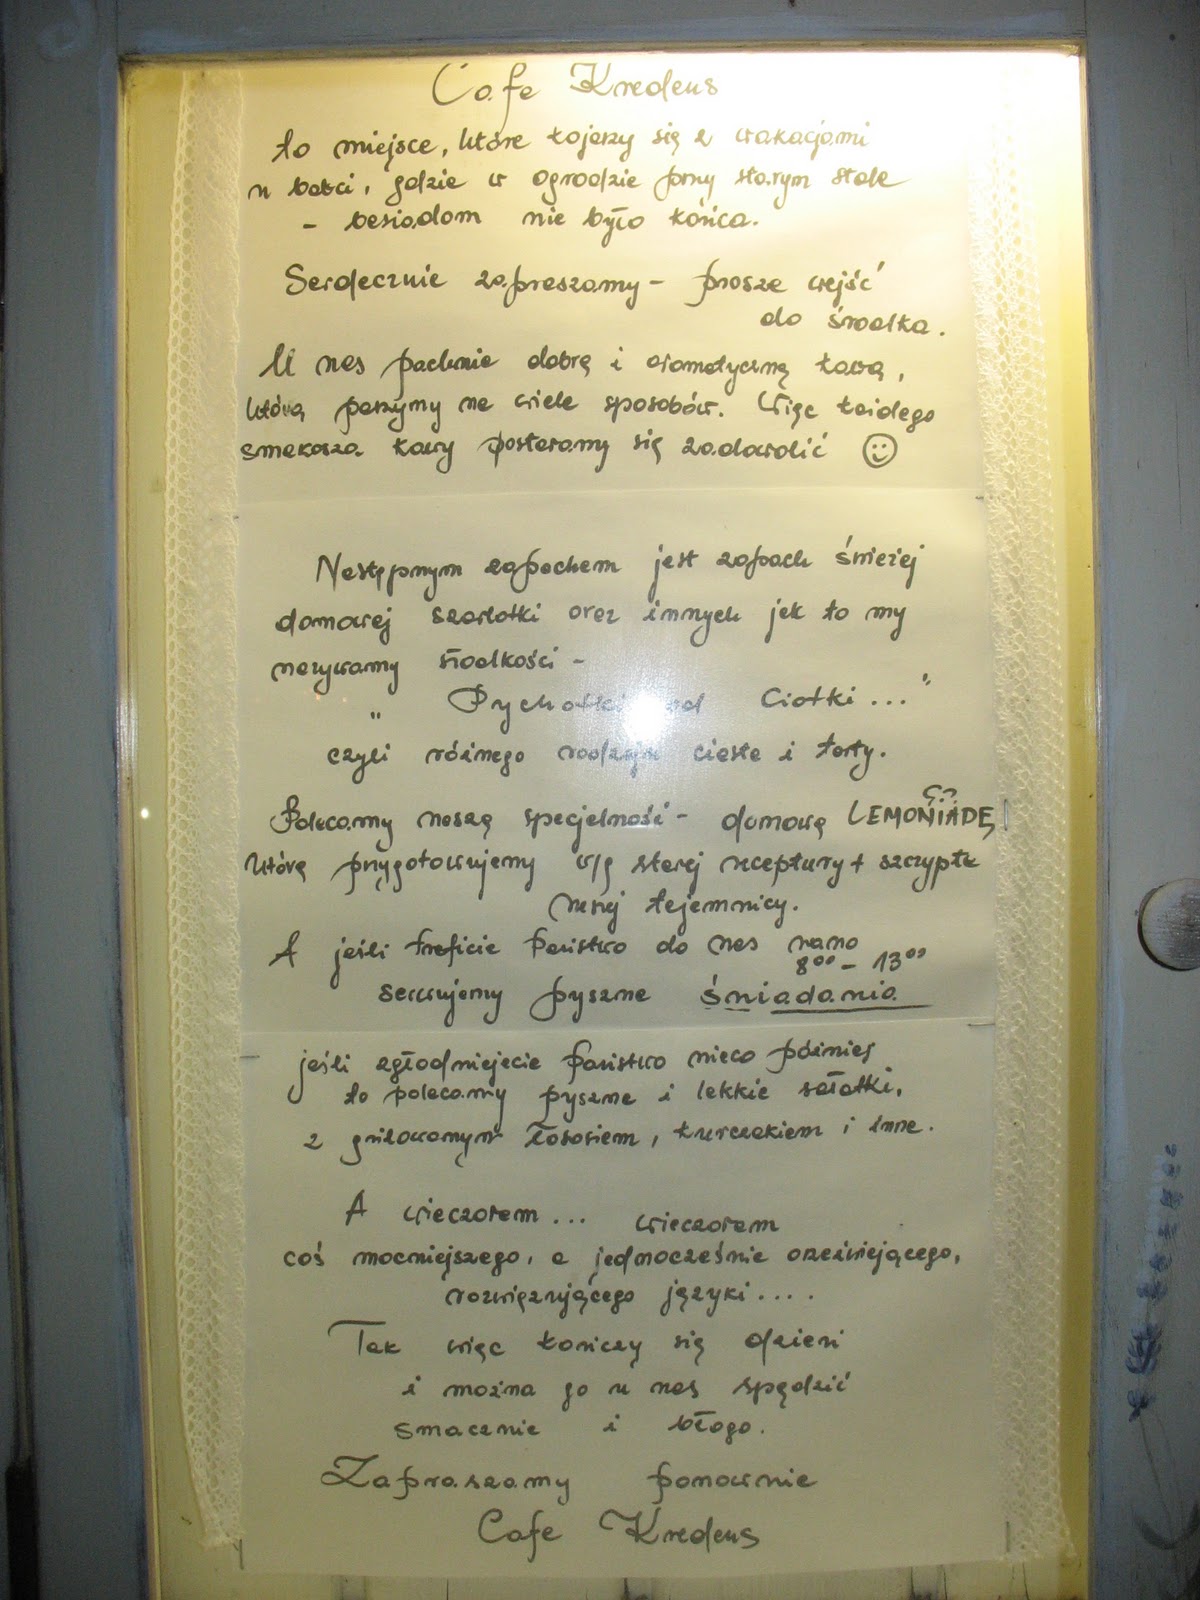 Cafe Kredens
to miejsce, które kojarzy się z wakacjami
u babci, gdzie w ogrodzie przy starym stole
- besiadom nie było końca.
Serdecznie zapraszamy - prosze wejść
do środka.
U nas pachnie dobrą i aromatyczną kawą,
którą parzymy na wiele sposobów. Więc każdego
smakosza kawy postaramy się zadowolić ☺
Następnym zapachem jest zapach świeżej
domowej szarlotki oraz innych jak to my
nazywamy słodkości -
" Pychotki od Ciotki ... "
czyli różnego rodzaju ciasta i torty.
Polecamy naszą specjalność - domową LEMONIADĘ
którą przygotowujemy w/g starej receptury + szczypta
naszej tajemnicy.
A jeśli traficie Państwo do nas rano
8⁰⁰ - 13⁰⁰
serwujemy pyszne śniadania
jeśli zgłodniejecie Państwo nieco później
to polecamy pyszne i lekkie sałatki,
z grilowanym łososiem, kurczakiem i inne.
A wieczorem ... wieczorem
coś mocniejszego, a jednocześnie orzeźwiejącego,
rozwiązującego języki ....
Tak więc kończy się dzień
i można go u nas spędzić
smacznie i błogo.
Zapraszamy ponownie
Cafe Kredens